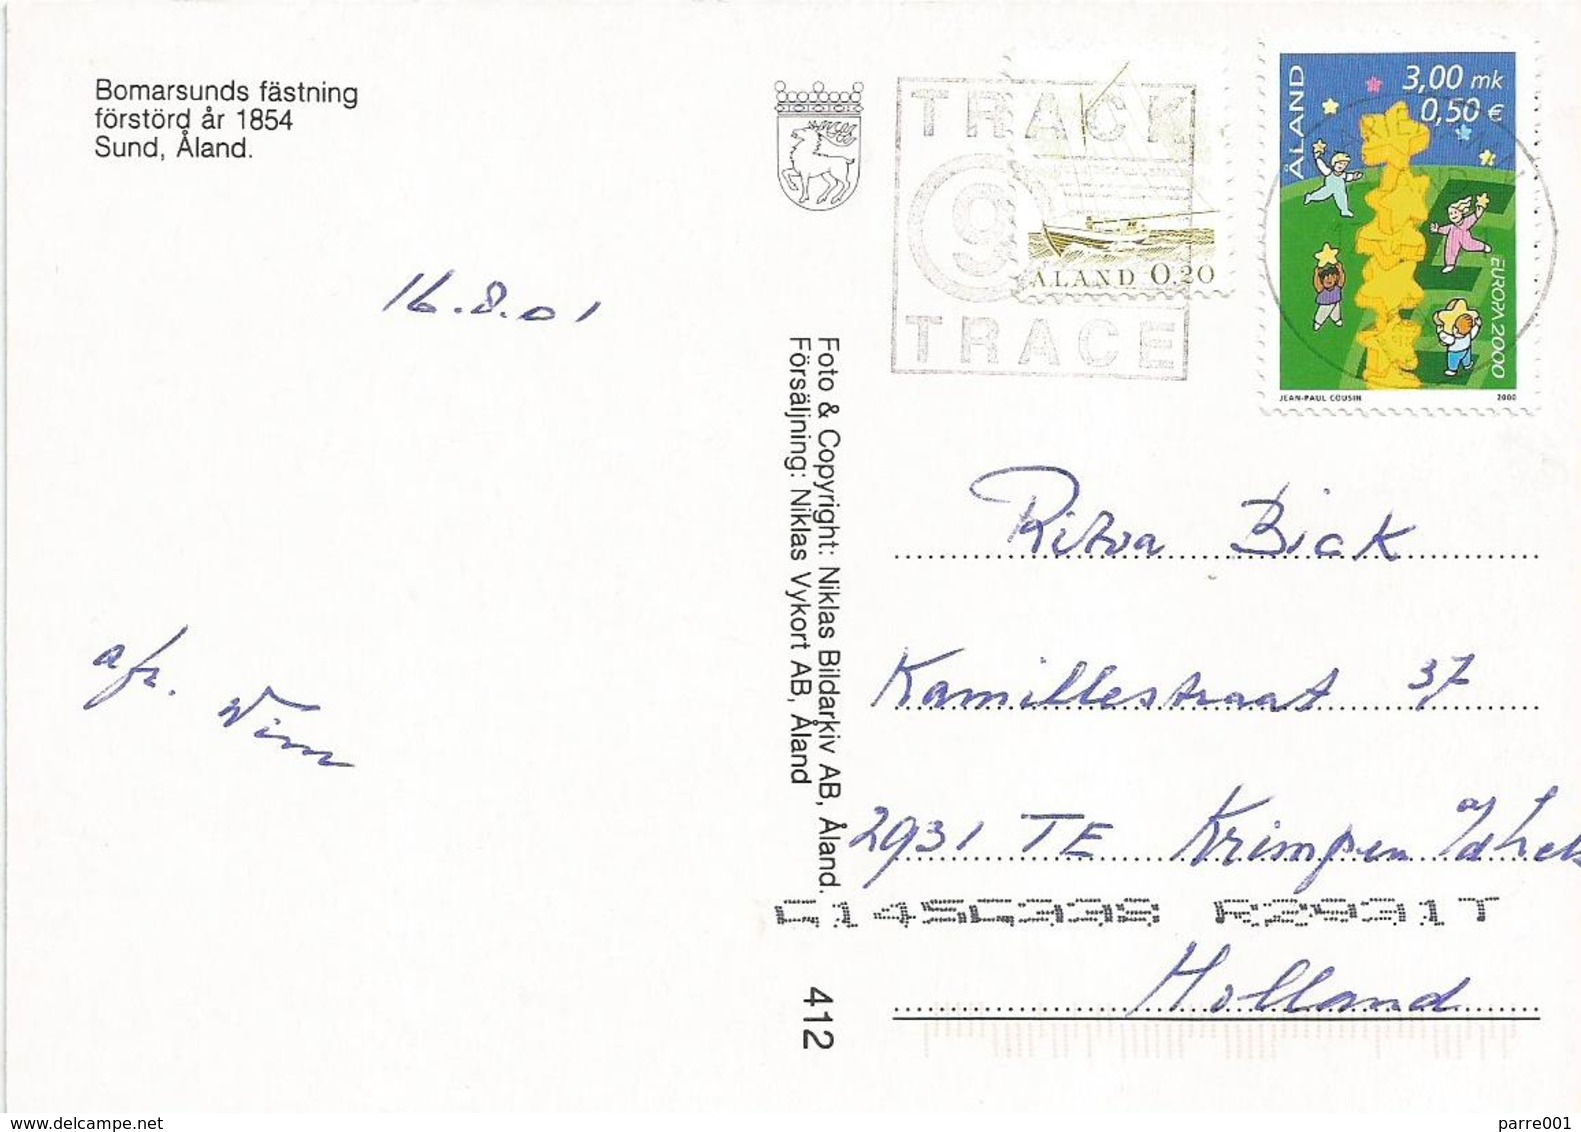 Bomarsunds fästning
förstörd år 1854
Sund, Åland.
16.8.01
afz. Wim
Foto & Copyright: Niklas Bildarkiv AB, Åland.
Försäljning: Niklas Vykort AB, Åland
412
TRACK
9
TRACE
ÅLAND 0.20
ÅLAND
3,00 mk
0,50 €
EUROPA 2000
JEAN-PAUL COUSIN 2000
Ritva Bick
Kamillestraat 37
2931 TE Krimpen a/d Lek
R2931T
Holland
www.delcampe.net
parre001